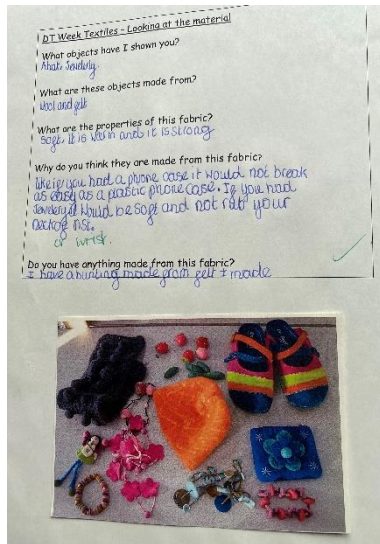 DT Week Textiles - Looking at the material
What objects have I shown you?
A hat, Jewlerly.
What are these objects made from?
Wool and felt
What are the properties of this fabric?
Soft, It is warm and it is strong
Why do you think they are made from this fabric?
like if you had a phone case it would not break
as easy as a plastic phone case. If you had
Jewlery it would be soft and not rub your
neck
or wrist.
Do you have anything made from this fabric?
I have a bunting made from felt I made